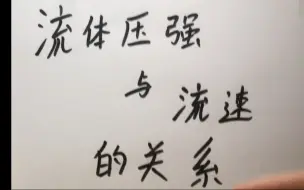 流体压强
与流速
的关系